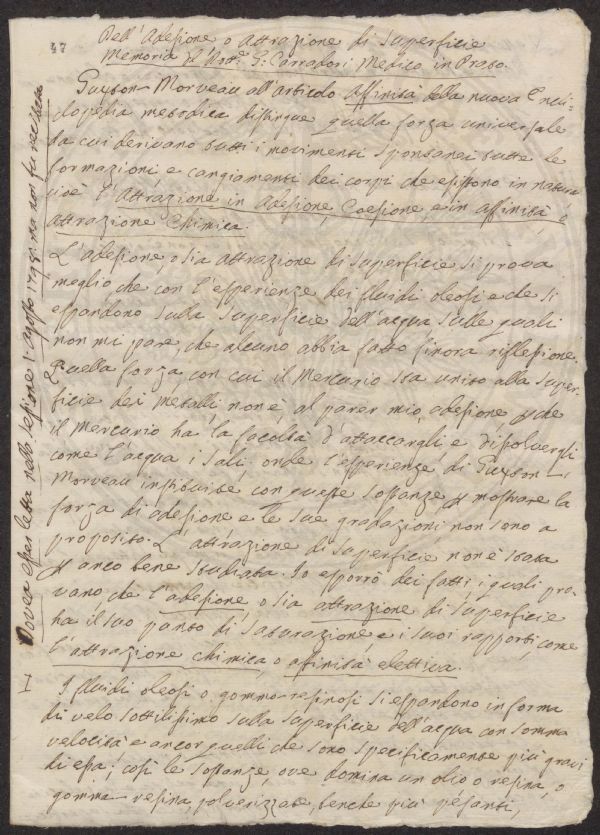 47
Dell'Adesione o attrazione di superficie
Memoria del Dott. G: Carradori Medico in Prato.
Guyton-Morveau all'articolo Affinità della nuova Enci-
clopedia metodica distingue quella forza universale
da cui derivano tutti i movimenti spontanei tutte le
formazioni, e cangiamenti dei corpi che esistono in natura
cioè l'attrazione in adesione, Coesione, e in affinità, o
attrazione Chimica.
L'adesione, o sia attrazione di superficie si prova
meglio che con l'esperienze dei fluidi oleosi che si
espandono sulla superficie dell'acqua sulle quali
non mi pare, che alcuno abbia fatto finora riflessione.
Quella forza, con cui il Mercurio sta unito alla super-
ficie dei metalli, non è, al parer mio, adesione, perche
il Mercurio ha la facoltà d'attaccargli e dissolvergli
come l'acqua i sali, onde l'esperienze di Guyton-
Morveau instituite con queste sostanze per mostrare la
forza di adesione e le sue gradazioni non sono a
proposito. L'attrazione di superficie non è stata
per anco bene studiata. Io esporrò dei fatti, i quali pro-
vano che l'adesione, o sia attrazione di superficie
ha il suo punto di saturazione, e i suoi rapporti, come
l'attrazione chimica, o affinità elettiva.
I fluidi oleosi o gommo-resinosi si espandono in forma
di velo sottilissimo sulla superficie dell'acqua con somma
velocità e ancor quelli che sono specificamente più gravi
di essa; così le sostanze, ove domina un olio o resina, o
gomma-resina, polverizzate, benche più pesanti,
I
Dovea esser letta nella sessione 1 agosto 1798. ma non fu